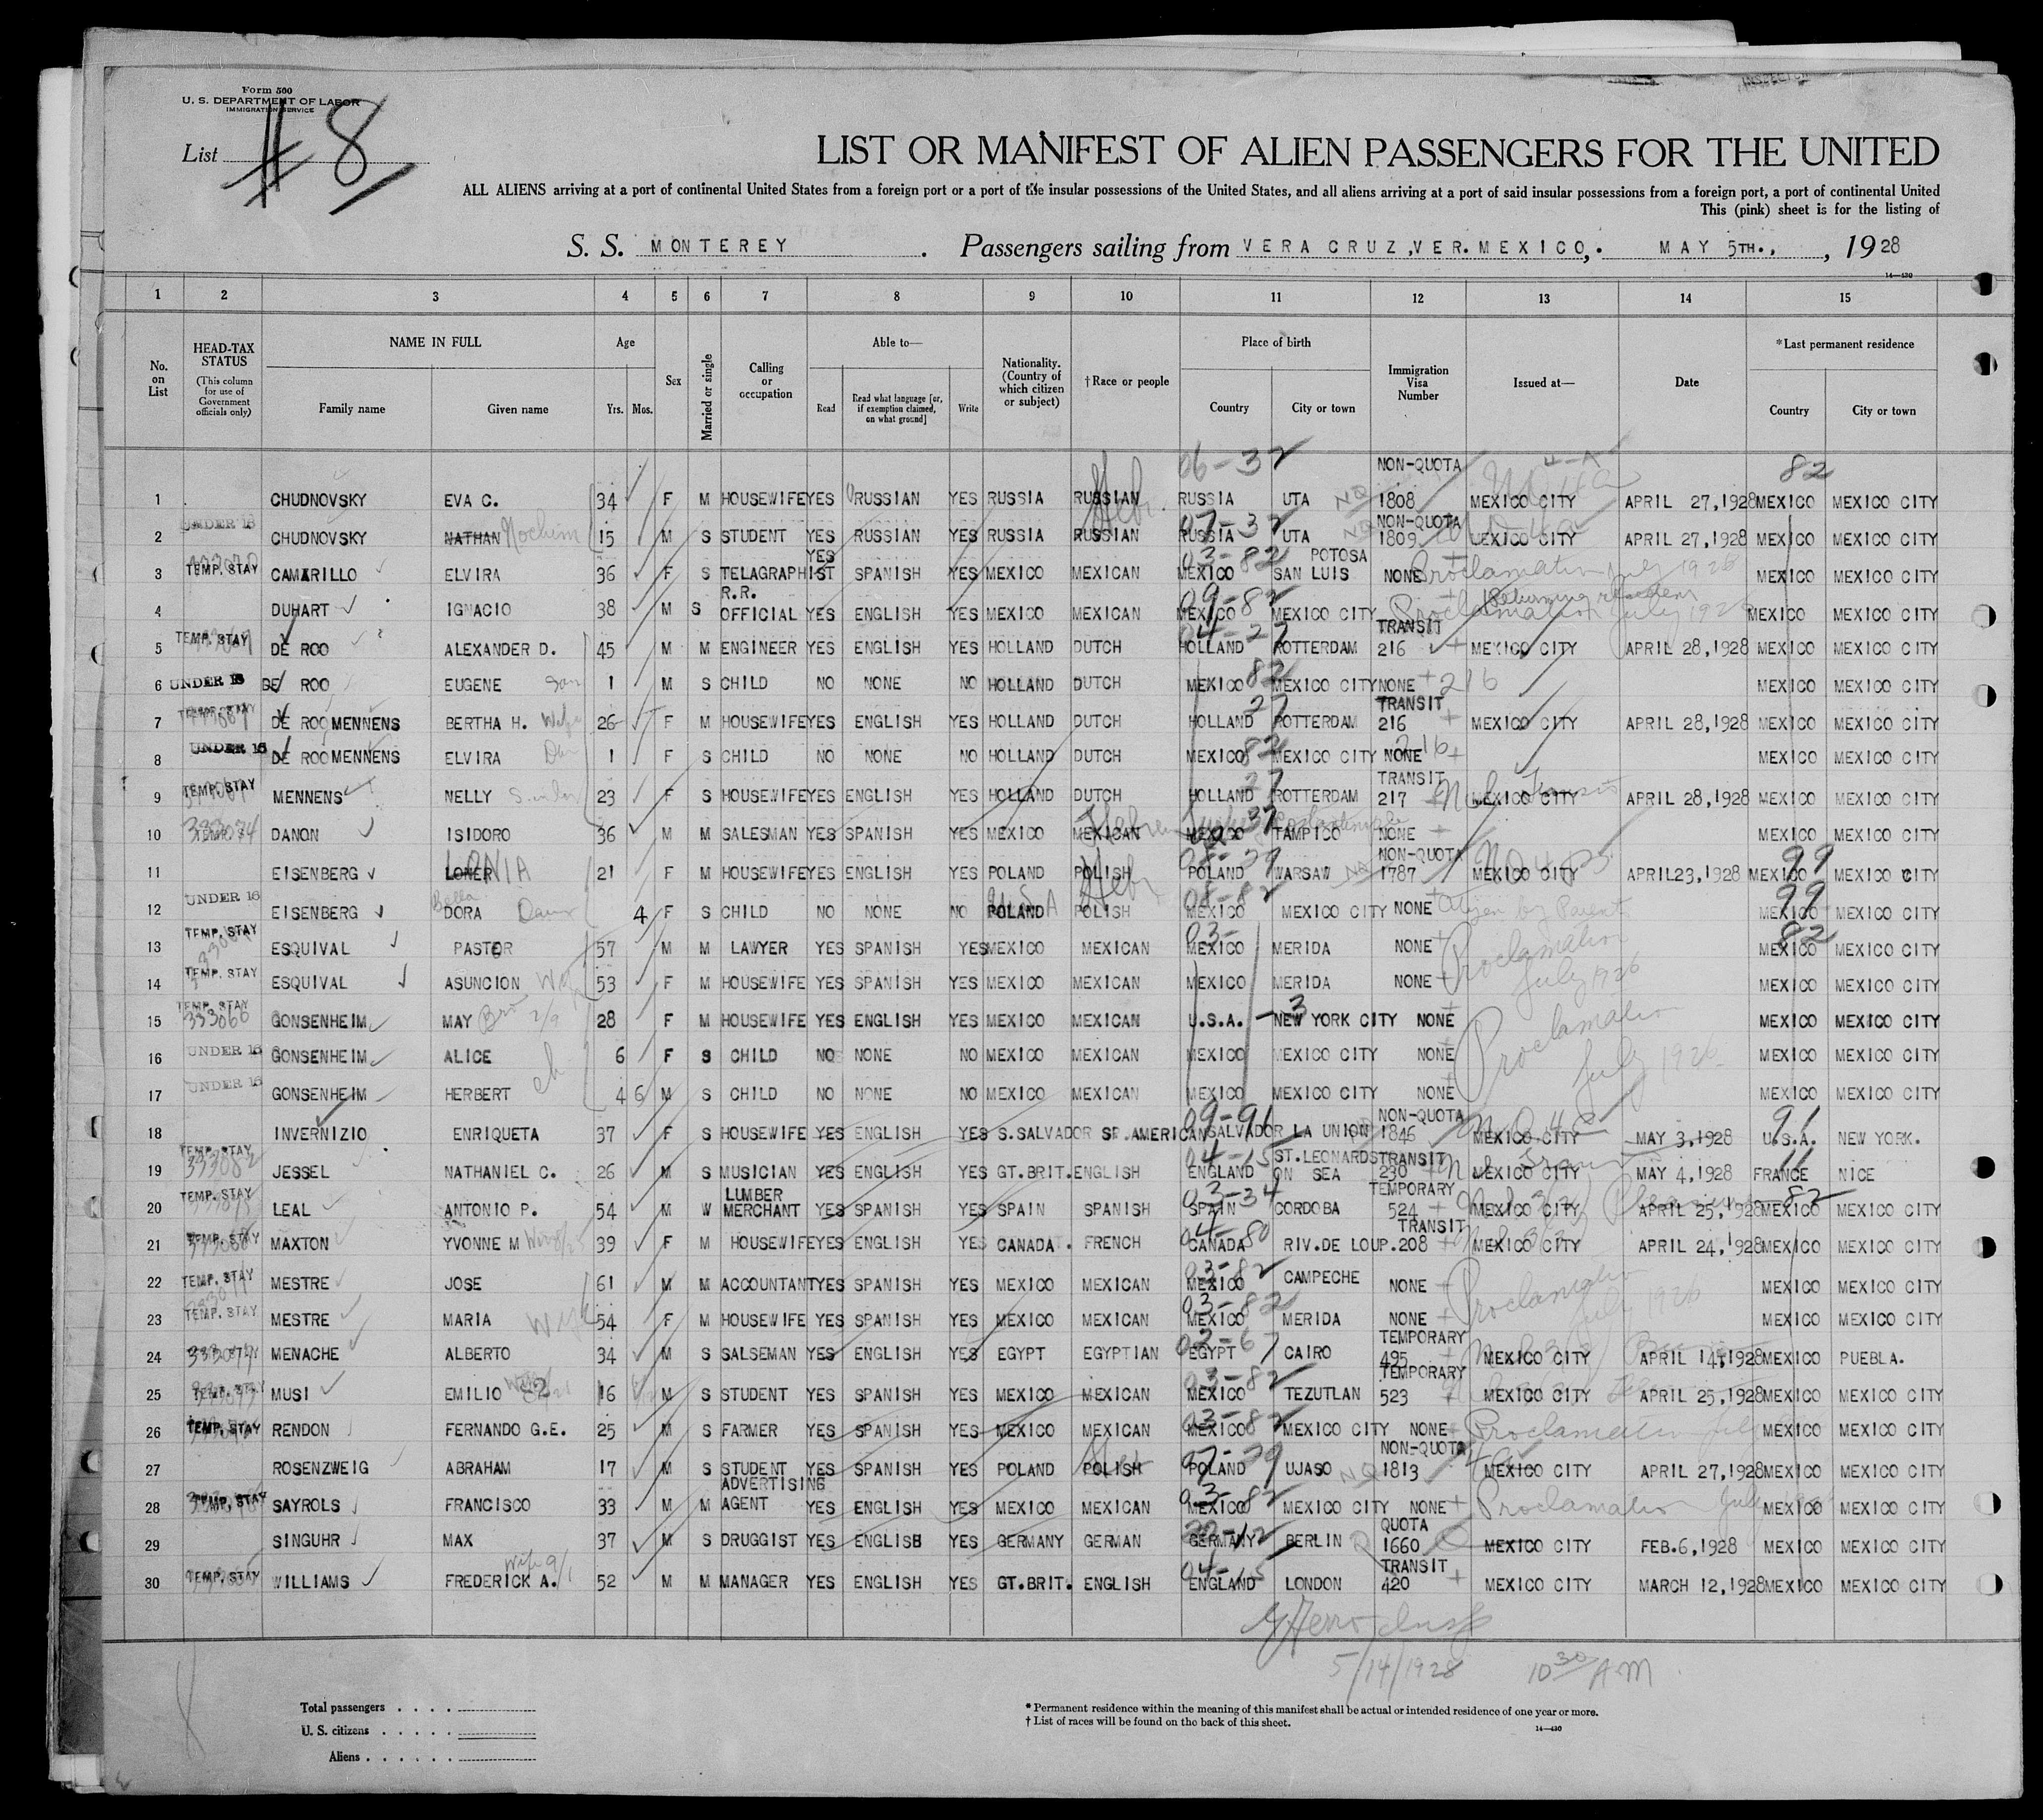 Form 500
U. S. DEPARTMENT OF LABOR
IMMIGRATION SERVICE
INSPECTOR
List #8
LIST OR MANIFEST OF ALIEN PASSENGERS FOR THE UNITED
ALL ALIENS arriving at a port of continental United States from a foreign port or a port of the insular possessions of the United States, and all aliens arriving at a port of said insular possessions from a foreign port, a port of continental United
This (pink) sheet is for the listing of
S. S. MONTEREY . Passengers sailing from VERA CRUZ, VER. MEXICO,. MAY 5TH., , 1928
14—430
1 2 3 4 5 6 7 8 9 10 11 12 13 14 15
No. on List
HEAD-TAX STATUS (This column for use of Government officials only)
NAME IN FULL Family name Given name
Age Yrs. Mos.
Sex
Married or single
Calling or occupation
Able to— Read Read what language [or, if exemption claimed, on what ground] Write
Nationality. (Country of which citizen or subject)
†Race or people
Place of birth Country City or town
Immigration Visa Number
Issued at—
Date
*Last permanent residence Country City or town
06-32 NON-QUOTA 82
1 CHUDNOVSKY EVA C. 34 F M HOUSEWIFE YES RUSSIAN YES RUSSIA RUSSIAN Hebr. RUSSIA UTA NQ 1808 MEXICO CITY APRIL 27,1928 MEXICO MEXICO CITY
UNDER 16 07-32 NON-QUOTA
2 CHUDNOVSKY NATHAN Nochim 15 M S STUDENT YES RUSSIAN YES RUSSIA RUSSIAN RUSSIA UTA NQ 1809 MEXICO CITY APRIL 27,1928 MEXICO MEXICO CITY
YES 03-82 POTOSA
3 TEMP. STAY CAMARILLO ELVIRA 36 F S TELAGRAPHIST SPANISH YES MEXICO MEXICAN MEXICO SAN LUIS NONE Proclamation July 1926 MEXICO MEXICO CITY
R.R. 09-82 Returning resident
4 DUHART IGNACIO 38 M S OFFICIAL YES ENGLISH YES MEXICO MEXICAN MEXICO MEXICO CITY Proclamation July 1926 MEXICO MEXICO CITY
TEMP. STAY 04-27 TRANSIT
5 DE ROO ALEXANDER D. 45 M M ENGINEER YES ENGLISH YES HOLLAND DUTCH HOLLAND ROTTERDAM 216 MEXICO CITY APRIL 28,1928 MEXICO MEXICO CITY
82
6 UNDER 16 DE ROO EUGENE Son 1 M S CHILD NO NONE NO HOLLAND DUTCH MEXICO MEXICO CITY NONE 216 MEXICO MEXICO CITY
27 TRANSIT
7 TEMP. STAY DE ROO MENNENS BERTHA H. Wife 26 F M HOUSEWIFE YES ENGLISH YES HOLLAND DUTCH HOLLAND ROTTERDAM 216 MEXICO CITY APRIL 28,1928 MEXICO MEXICO CITY
8 UNDER 16 DE ROO MENNENS ELVIRA Dau 1 F S CHILD NO NONE NO HOLLAND DUTCH MEXICO 82 MEXICO CITY NONE 216 MEXICO MEXICO CITY
27 TRANSIT
9 TEMP. STAY MENNENS NELLY 23 F S HOUSEWIFE YES ENGLISH YES HOLLAND DUTCH HOLLAND ROTTERDAM 217 MEXICO CITY Transit APRIL 28,1928 MEXICO MEXICO CITY
10 333074 DANON ISIDORO 36 M M SALESMAN YES SPANISH YES MEXICO MEXICAN Hebrew MEXICO 37 TAMPICO NONE MEXICO MEXICO CITY
LONIA 08-79 NON-QUOTA 99
11 EISENBERG LONER 21 F M HOUSEWIFE YES ENGLISH YES POLAND POLISH Hebr POLAND WARSAW NQ 1787 MEXICO CITY APRIL23,1928 MEXICO MEXICO CITY
UNDER 16 Bella 08-82 99
12 EISENBERG DORA Daur 4 F S CHILD NO NONE NO POLAND U.S.A POLISH MEXICO MEXICO CITY NONE Citizen by Parents MEXICO MEXICO CITY
TEMP. STAY 03- 82
13 ESQUIVAL PASTOR 57 M M LAWYER YES SPANISH YES MEXICO MEXICAN MEXICO MERIDA NONE Proclamation MEXICO MEXICO CITY
14 TEMP. STAY ESQUIVAL ASUNCION Wife 53 F M HOUSEWIFE YES SPANISH YES MEXICO MEXICAN MEXICO MERIDA NONE July 1926 MEXICO MEXICO CITY
TEMP. STAY
15 333066 GONSENHEIM MAY 28 F M HOUSEWIFE YES ENGLISH YES MEXICO MEXICAN U.S.A. -3 NEW YORK CITY NONE Proclamation MEXICO MEXICO CITY
16 UNDER 16 GONSENHEIM ALICE 6 F S CHILD NO NONE NO MEXICO MEXICAN MEXICO MEXICO CITY NONE July 1926 MEXICO MEXICO CITY
17 UNDER 16 GONSENHEIM HERBERT ch 4 6 M S CHILD NO NONE NO MEXICO MEXICAN MEXICO MEXICO CITY NONE MEXICO MEXICO CITY
09-91 NON-QUOTA 91
18 INVERNIZIO ENRIQUETA 37 F S HOUSEWIFE YES ENGLISH YES S.SALVADOR SP.AMERICAN SALVADOR LA UNION 1846 MEXICO CITY MAY 3,1928 U.S.A. NEW YORK.
TEMP. STAY 04-15 ST.LEONARDS TRANSIT 11
19 333082 JESSEL NATHANIEL C. 26 M S MUSICIAN YES ENGLISH YES GT.BRIT. ENGLISH ENGLAND ON SEA 230 MEXICO CITY MAY 4,1928 FRANCE NICE
TEMP. STAY LUMBER 03-34 TEMPORARY 82
20 LEAL ANTONIO P. 54 M W MERCHANT YES SPANISH YES SPAIN SPANISH SPAIN CORDOBA 524 MEXICO CITY APRIL 25,1928 MEXICO MEXICO CITY
04-80 TRANSIT
21 TEMP. STAY MAXTON YVONNE M 39 F M HOUSEWIFE YES ENGLISH YES CANADA. FRENCH CANADA RIV.DE LOUP. 208 MEXICO CITY APRIL 24,1928 MEXICO MEXICO CITY
03-82
22 TEMP. STAY MESTRE JOSE 61 M M ACCOUNTANT YES SPANISH YES MEXICO MEXICAN MEXICO CAMPECHE NONE Proclamation MEXICO MEXICO CITY
03-82
23 TEMP. STAY MESTRE MARIA Wife 54 F M HOUSEWIFE YES SPANISH YES MEXICO MEXICAN MEXICO MERIDA NONE July 1926 MEXICO MEXICO CITY
02-67 TEMPORARY
24 MENACHE ALBERTO 34 M S SALSEMAN YES ENGLISH YES EGYPT EGYPTIAN EGYPT CAIRO 495 MEXICO CITY APRIL 14,1928 MEXICO PUEBLA.
03-82 TEMPORARY
25 TEMP. STAY MUSI EMILIO 16 M S STUDENT YES SPANISH YES MEXICO MEXICAN MEXICO TEZUTLAN 523 MEXICO CITY APRIL 25,1928 MEXICO MEXICO CITY
03-82
26 TEMP. STAY RENDON FERNANDO G.E. 25 M S FARMER YES SPANISH YES MEXICO MEXICAN MEXICO MEXICO CITY NONE Proclamation July MEXICO MEXICO CITY
07-79 NON-QUOTA
27 ROSENZWEIG ABRAHAM 17 M S STUDENT YES SPANISH YES POLAND POLISH POLAND UJASO NQ 1813 MEXICO CITY APRIL 27,1928 MEXICO MEXICO CITY
ADVERTISING 03-82
28 TEMP. STAY SAYROLS FRANCISCO 33 M M AGENT YES ENGLISH YES MEXICO MEXICAN MEXICO MEXICO CITY NONE Proclamation July MEXICO MEXICO CITY
QUOTA
29 SINGUHR MAX 37 M S DRUGGIST YES ENGLISH YES GERMANY GERMAN GERMANY BERLIN Q 1660 MEXICO CITY FEB.6,1928 MEXICO MEXICO CITY
04-15 TRANSIT
30 TEMP. STAY WILLIAMS FREDERICK A. 52 M M MANAGER YES ENGLISH YES GT.BRIT. ENGLISH ENGLAND LONDON 420 MEXICO CITY MARCH 12,1928 MEXICO MEXICO CITY
5/14/1928 10 30 AM
Total passengers . . . .
U. S. citizens . . . . .
Aliens . . . . . .
* Permanent residence within the meaning of this manifest shall be actual or intended residence of one year or more.
† List of races will be found on the back of this sheet.
14—430